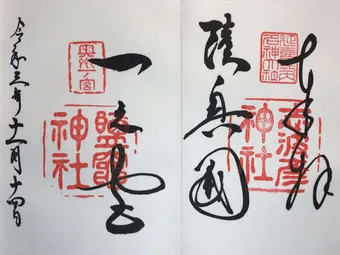 奉拝
延喜式名神大社
志波彦神社
陸奥國
一之宮
奥州一宮
鹽竈神社
令和三年十一月十四日